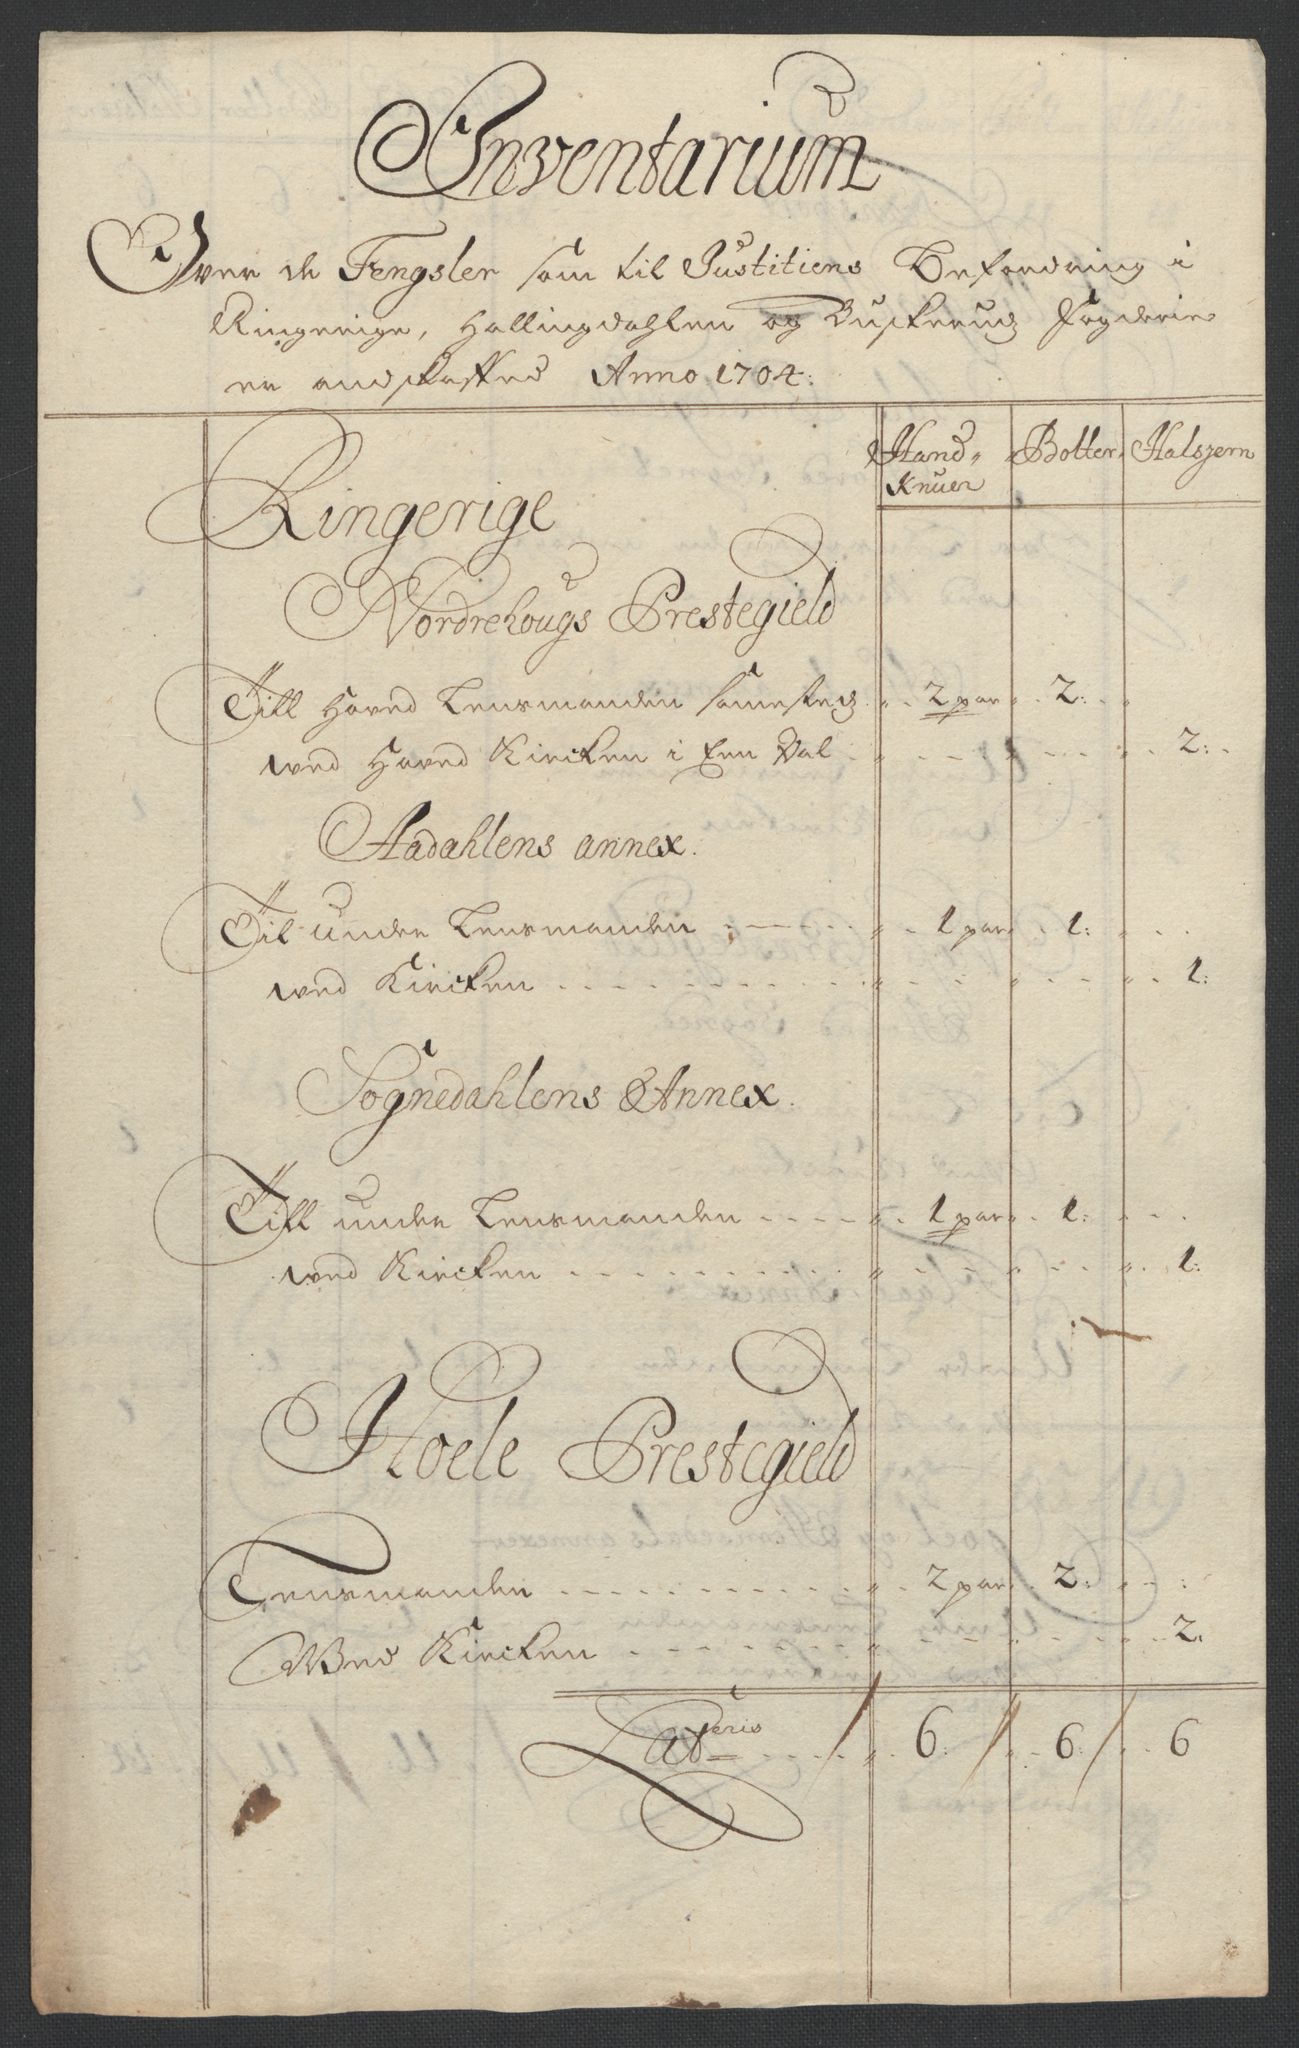 Inventarium
Over de Fengsler som til Justitiens Befordring i
Ringerige, Hallingdahlen og Buskeruds Fogderie
er anskaffed Anno 1704:
Hand Knuer Bolter Halszern
Ringerige
Nordrehougs Prestegield
Till Hoved Lensmanden samesteds 2 par 2:
wed Hoved Kircken i Een Val 2:
Aadahlens annex.
Til under Lensmanden 1 par 1:
wed Kircken 1:
Sognedahlens Annex.
Till under Lensmanden 1 par 1:
wed Kircken 1:
Hoele Prestegield
Lensmanden 2 par 2:
Wed Kircken 2:
Lateris 6: 6: 6